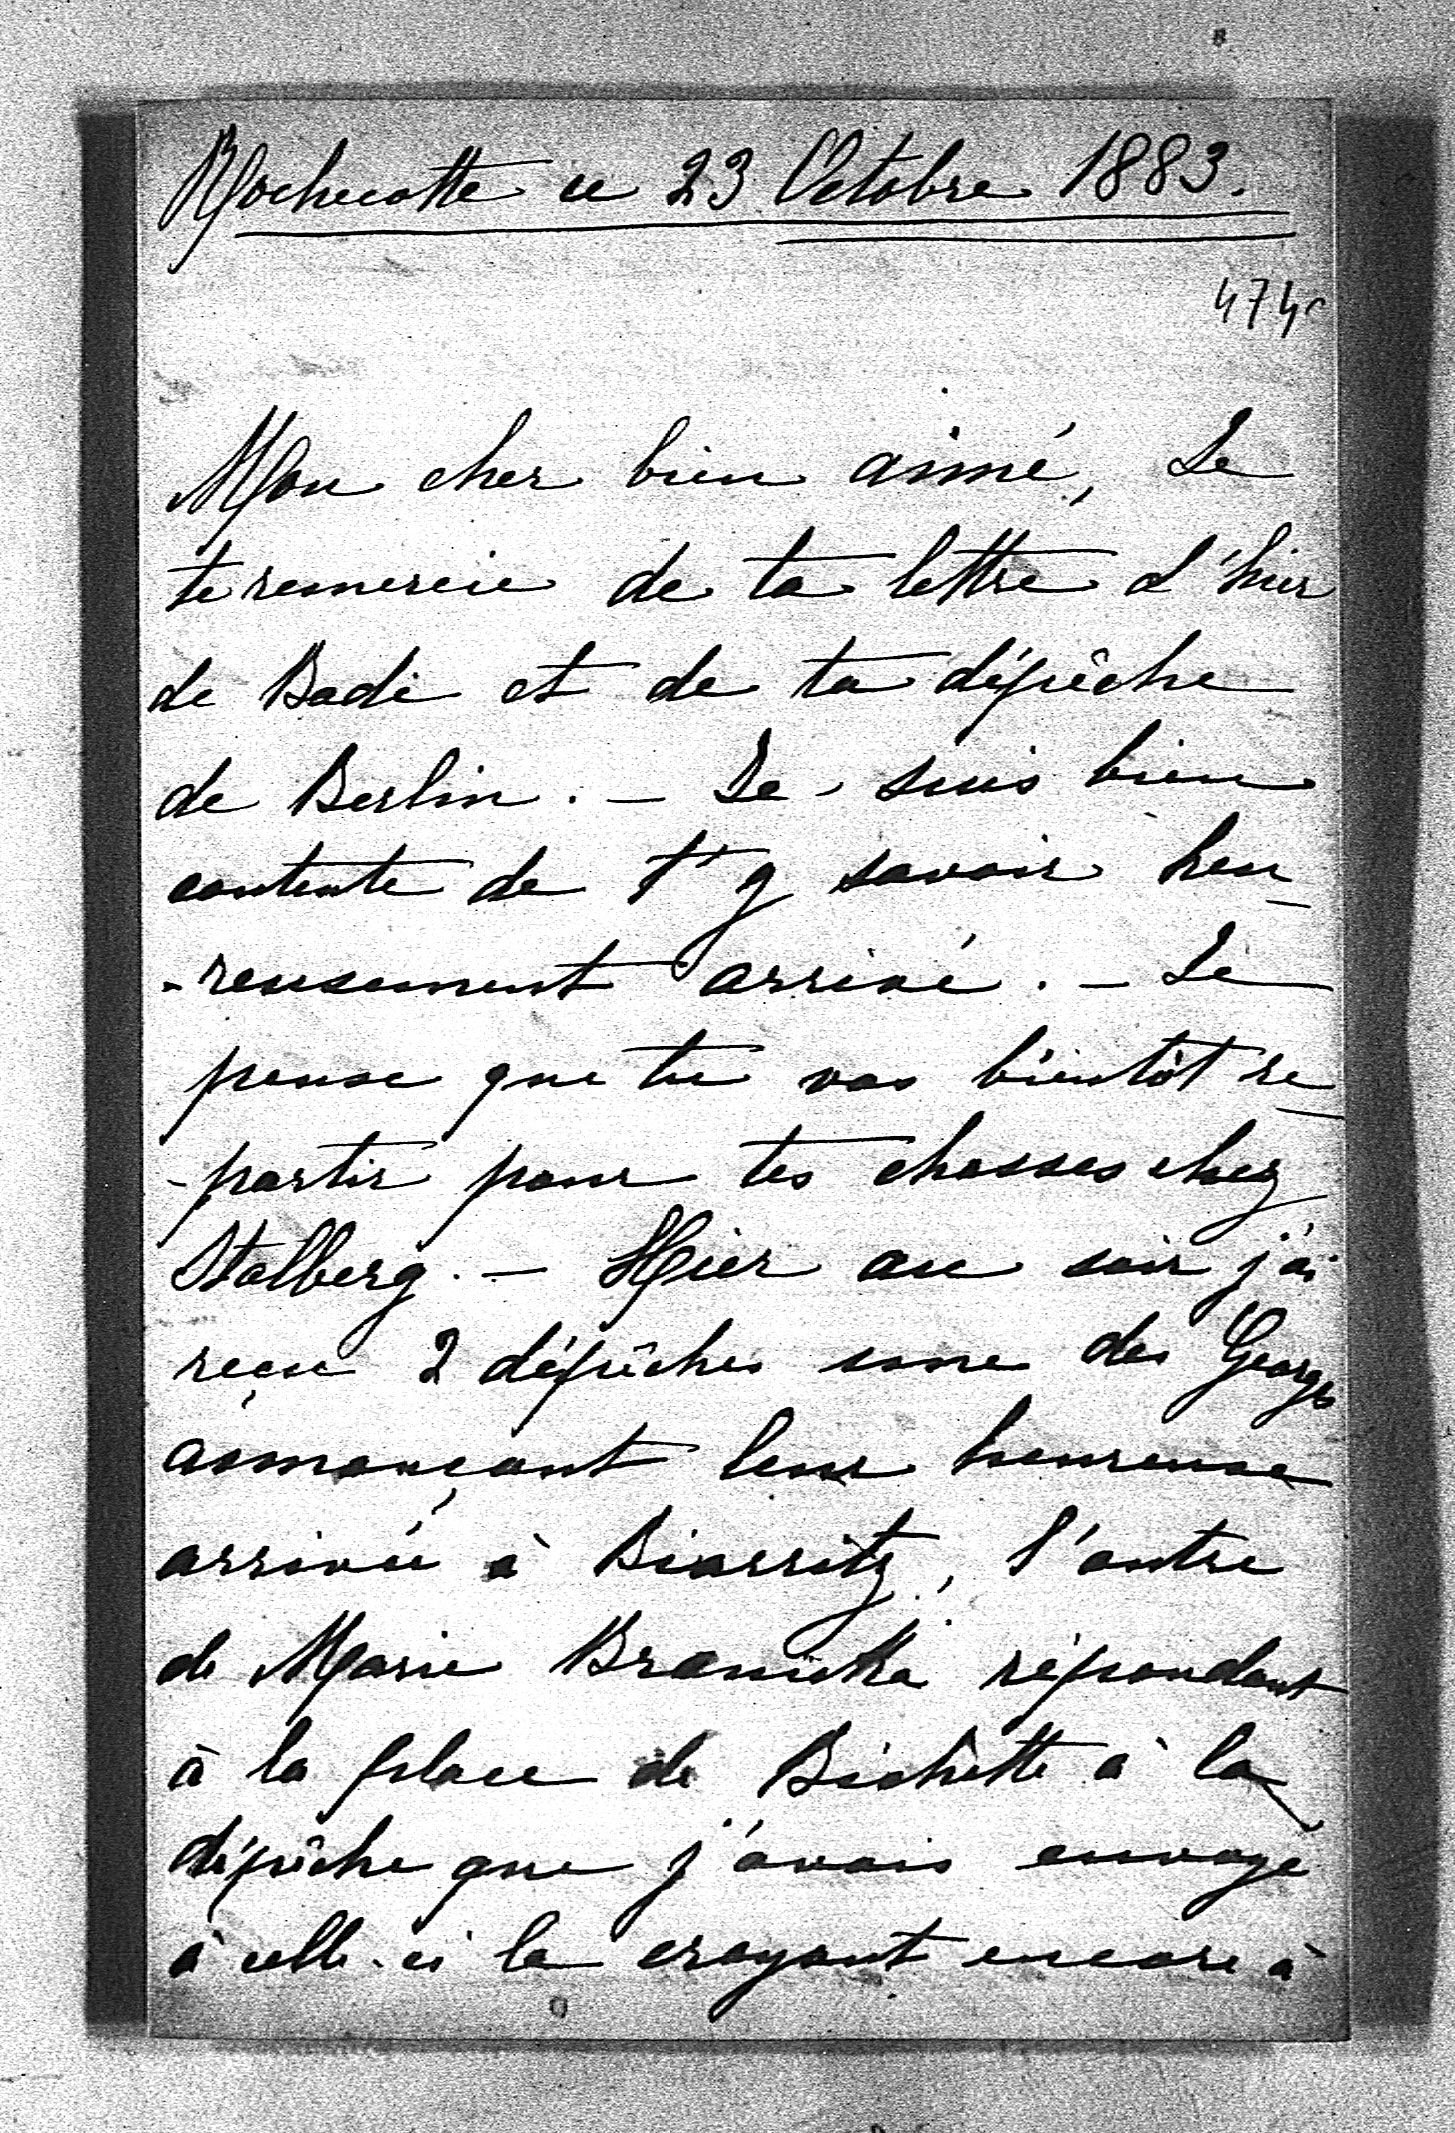 Rochecotte ce 23 Octobre 1883.
474
Mon cher bien aimé, Je
te remercie de ta lettre d'hier
de Bade et de ta dépêche
de Berlin. — Je suis bien
contente de t'y savoir heu
-reusement arrivé. — Je
pense que tu vas bientôt re
-partir pour tes chasses chez
Stolberg. — Hier au soir j'ai
reçu 2 dépêches une des Georges
annonçant leur heureuse
arrivée à Biarritz, l'autre
de Marie Branicka répondant
à la place de Bichette à la
dépêche que j'avais envoyé
à celle-ci la croyant encore à